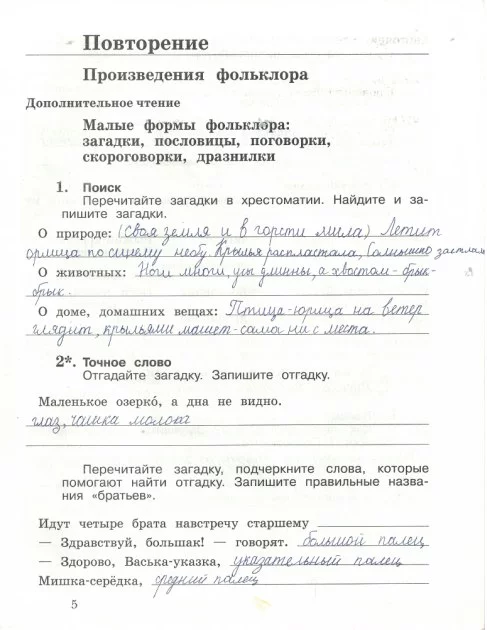 Повторение
Произведения фольклора
Дополнительное чтение
Малые формы фольклора:
загадки, пословицы, поговорки,
скороговорки, дразнилки
1. Поиск
Перечитайте загадки в хрестоматии. Найдите и за-
пишите загадки.
О природе: (Своя земля и в горсти мила) Летит
орлица по синему небу. Крылья распластала, Солнышко застлала
О животных: Ноги многи, усы длинны, а хвостом - брык-
брык.
О доме, домашних вещах: Птица-юрица на ветер
глядит, крыльями машет - сама ни с места.
2*. Точное слово
Отгадайте загадку. Запишите отгадку.
Маленькое озеркó, а дна не видно.
глаз, чашка молока
Перечитайте загадку, подчеркните слова, которые
помогают найти отгадку. Запишите правильные назва-
ния «братьев».
Идут четыре брата навстречу старшему
— Здравствуй, большак! — говорят. большой палец
— Здорово, Васька-указка, указательный палец
Мишка-серёдка, средний палец
5